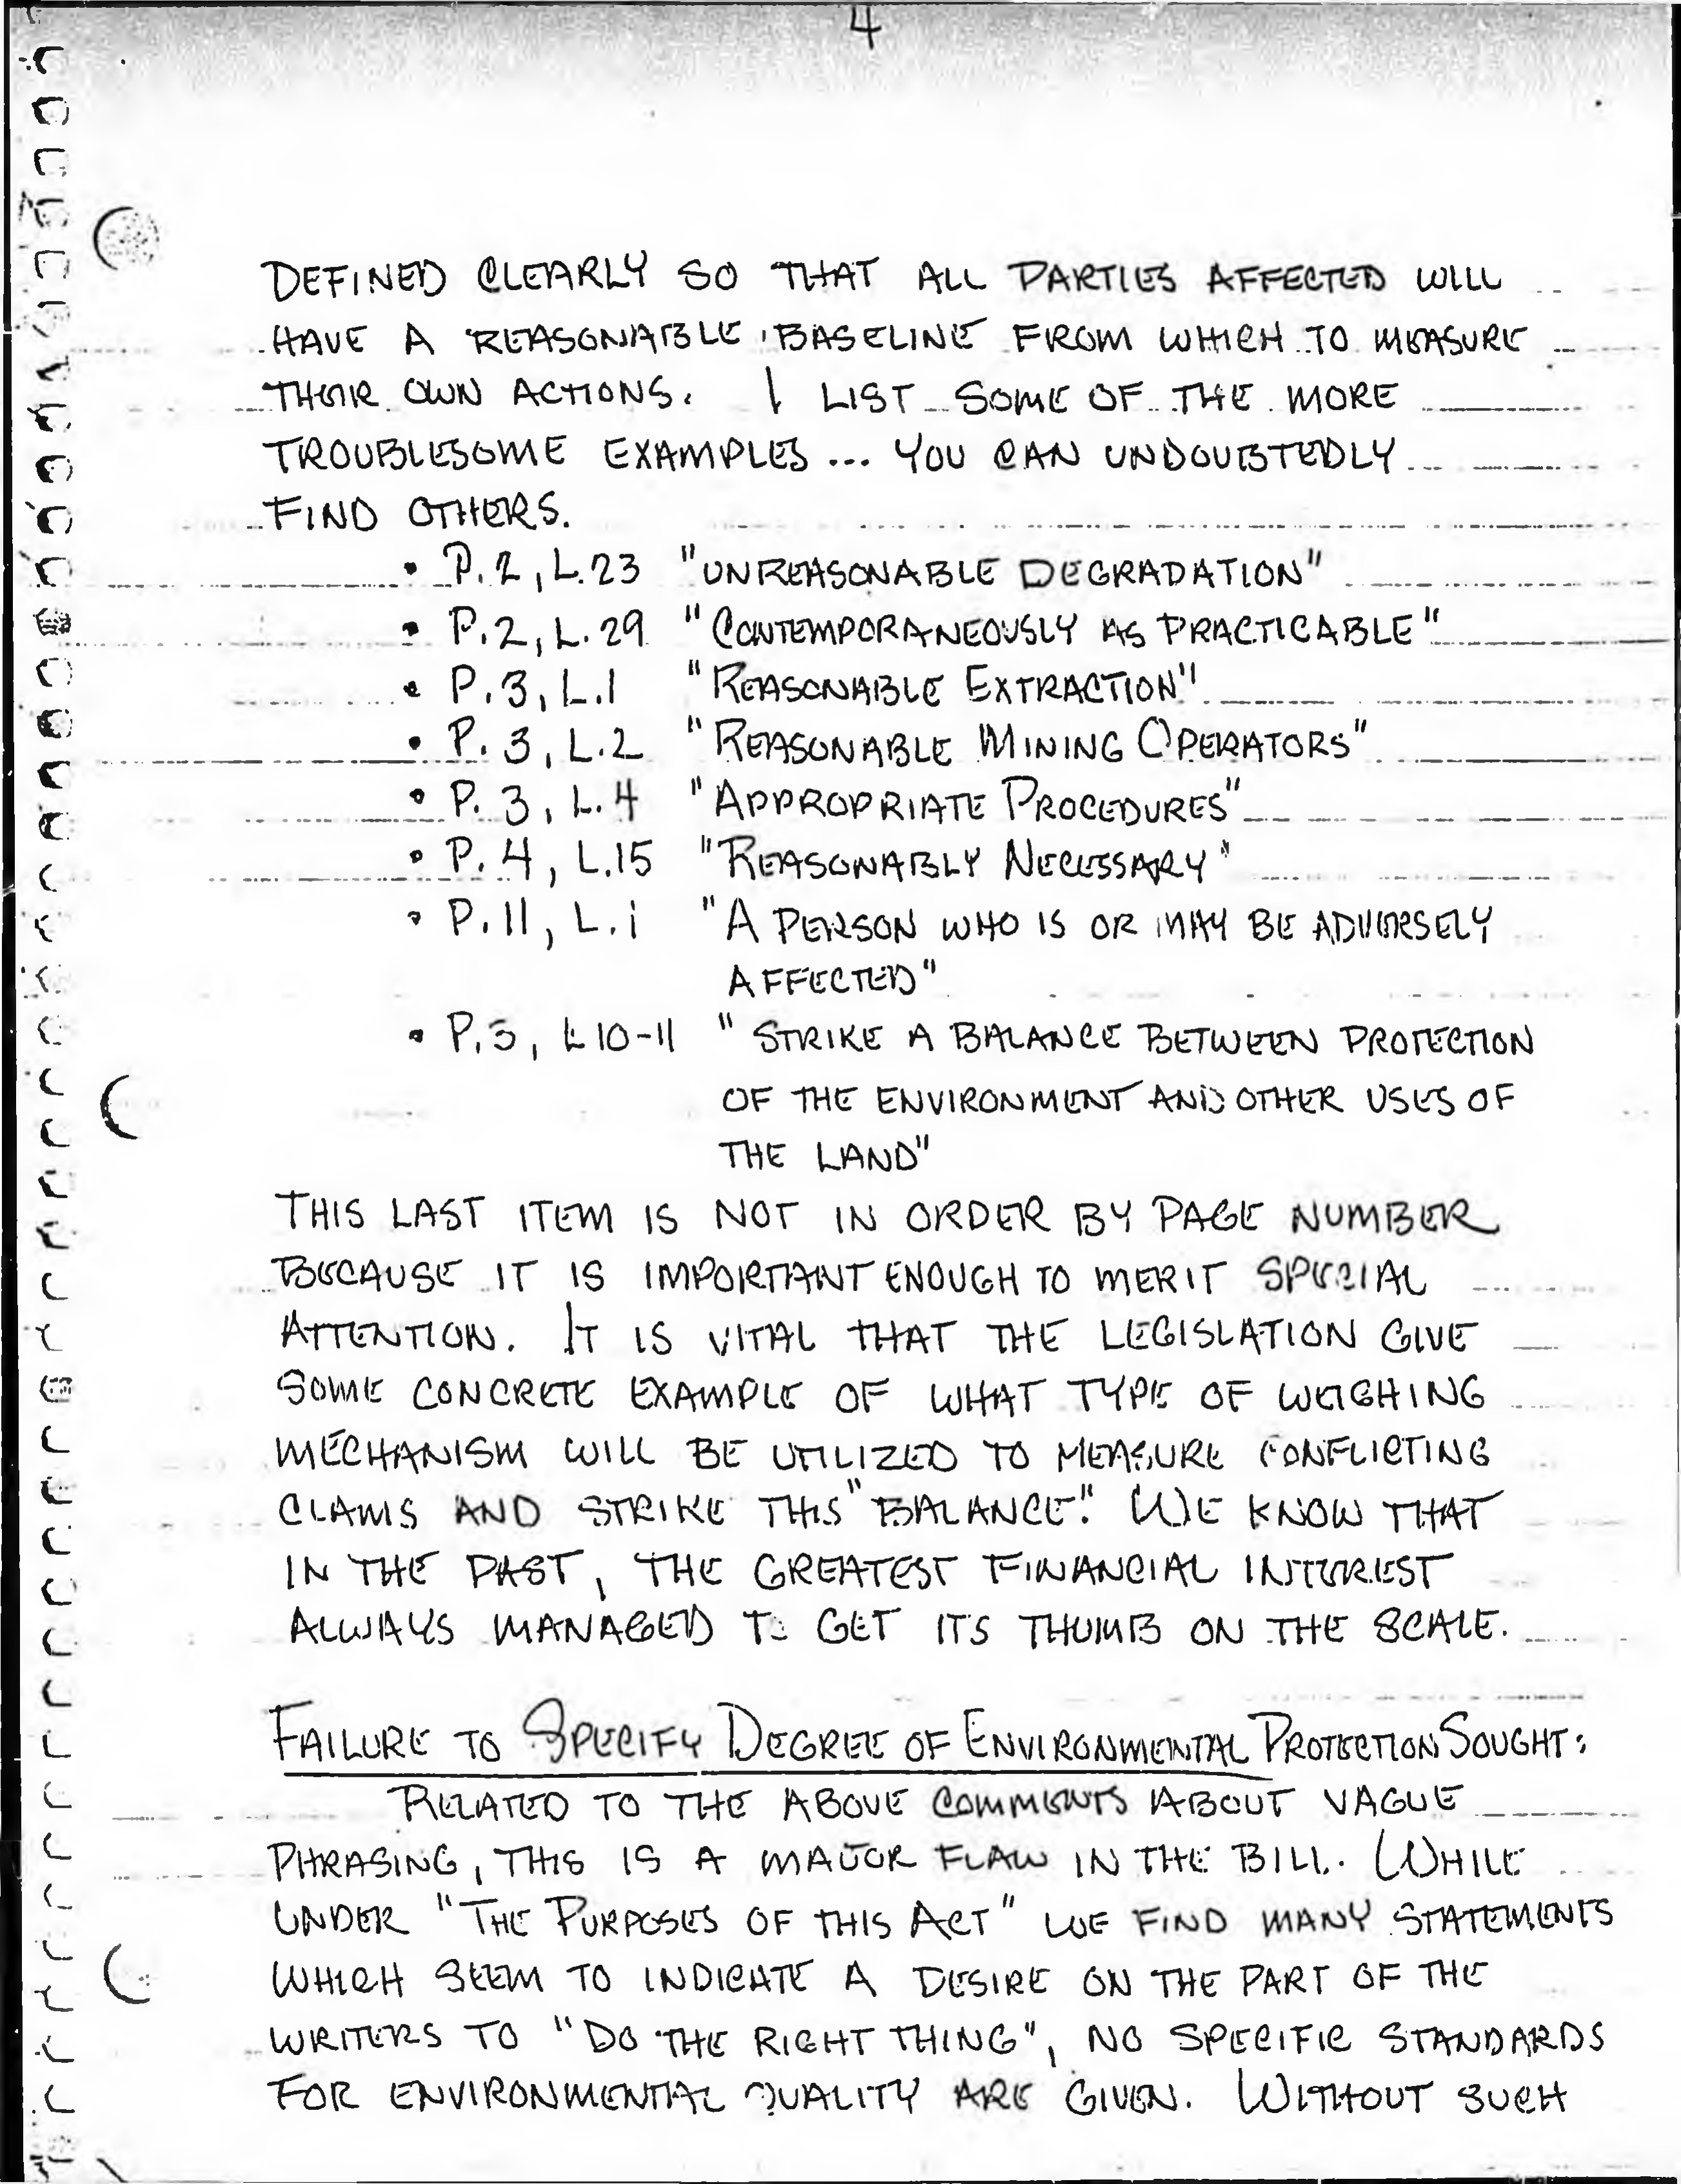 4
DEFINED CLEARLY SO THAT ALL PARTIES AFFECTED WILL
HAVE A REASONABLE BASELINE FROM WHICH TO MEASURE
THEIR OWN ACTIONS. I LIST SOME OF THE MORE
TROUBLESOME EXAMPLES... YOU CAN UNDOUBTEDLY
FIND OTHERS.
• P.2, L.23 "UNREASONABLE DEGRADATION"
• P.2, L.29 "CONTEMPORANEOUSLY AS PRACTICABLE"
• P.3, L.1 "REASONABLE EXTRACTION"
• P.3, L.2 "REASONABLE MINING OPERATORS"
• P.3, L.4 "APPROPRIATE PROCEDURES"
• P.4, L.15 "REASONABLY NECESSARY"
• P.11, L.1 "A PERSON WHO IS OR MAY BE ADVERSELY
AFFECTED"
• P.3, L 10-11 "STRIKE A BALANCE BETWEEN PROTECTION
OF THE ENVIRONMENT AND OTHER USES OF
THE LAND"
THIS LAST ITEM IS NOT IN ORDER BY PAGE NUMBER
BECAUSE IT IS IMPORTANT ENOUGH TO MERIT SPECIAL
ATTENTION. IT IS VITAL THAT THE LEGISLATION GIVE
SOME CONCRETE EXAMPLE OF WHAT TYPE OF WEIGHING
MECHANISM WILL BE UTILIZED TO MEASURE CONFLICTING
CLAIMS AND STRIKE THIS "BALANCE". WE KNOW THAT
IN THE PAST, THE GREATEST FINANCIAL INTEREST
ALWAYS MANAGED TO GET ITS THUMB ON THE SCALE.
FAILURE TO SPECIFY DEGREE OF ENVIRONMENTAL PROTECTION SOUGHT:
RELATED TO THE ABOVE COMMENTS ABOUT VAGUE
PHRASING, THIS IS A MAJOR FLAW IN THE BILL. WHILE
UNDER "THE PURPOSES OF THIS ACT" WE FIND MANY STATEMENTS
WHICH SEEM TO INDICATE A DESIRE ON THE PART OF THE
WRITERS TO "DO THE RIGHT THING", NO SPECIFIC STANDARDS
FOR ENVIRONMENTAL QUALITY ARE GIVEN. WITHOUT SUCH